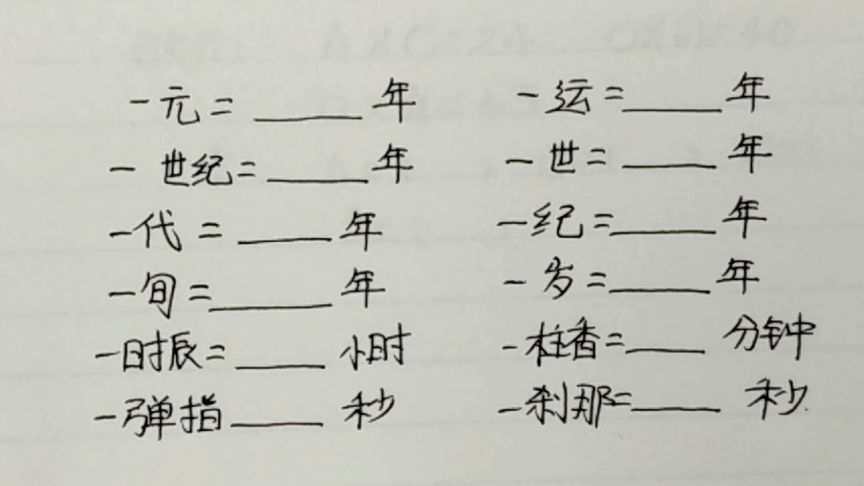 一元=____年 一运=____年
一世纪=____年 一世=____年
一代=____年 一纪=____年
一旬=____年 一岁=____年
一时辰=____小时 一柱香=____分钟
一弹指____秒 一刹那=____秒